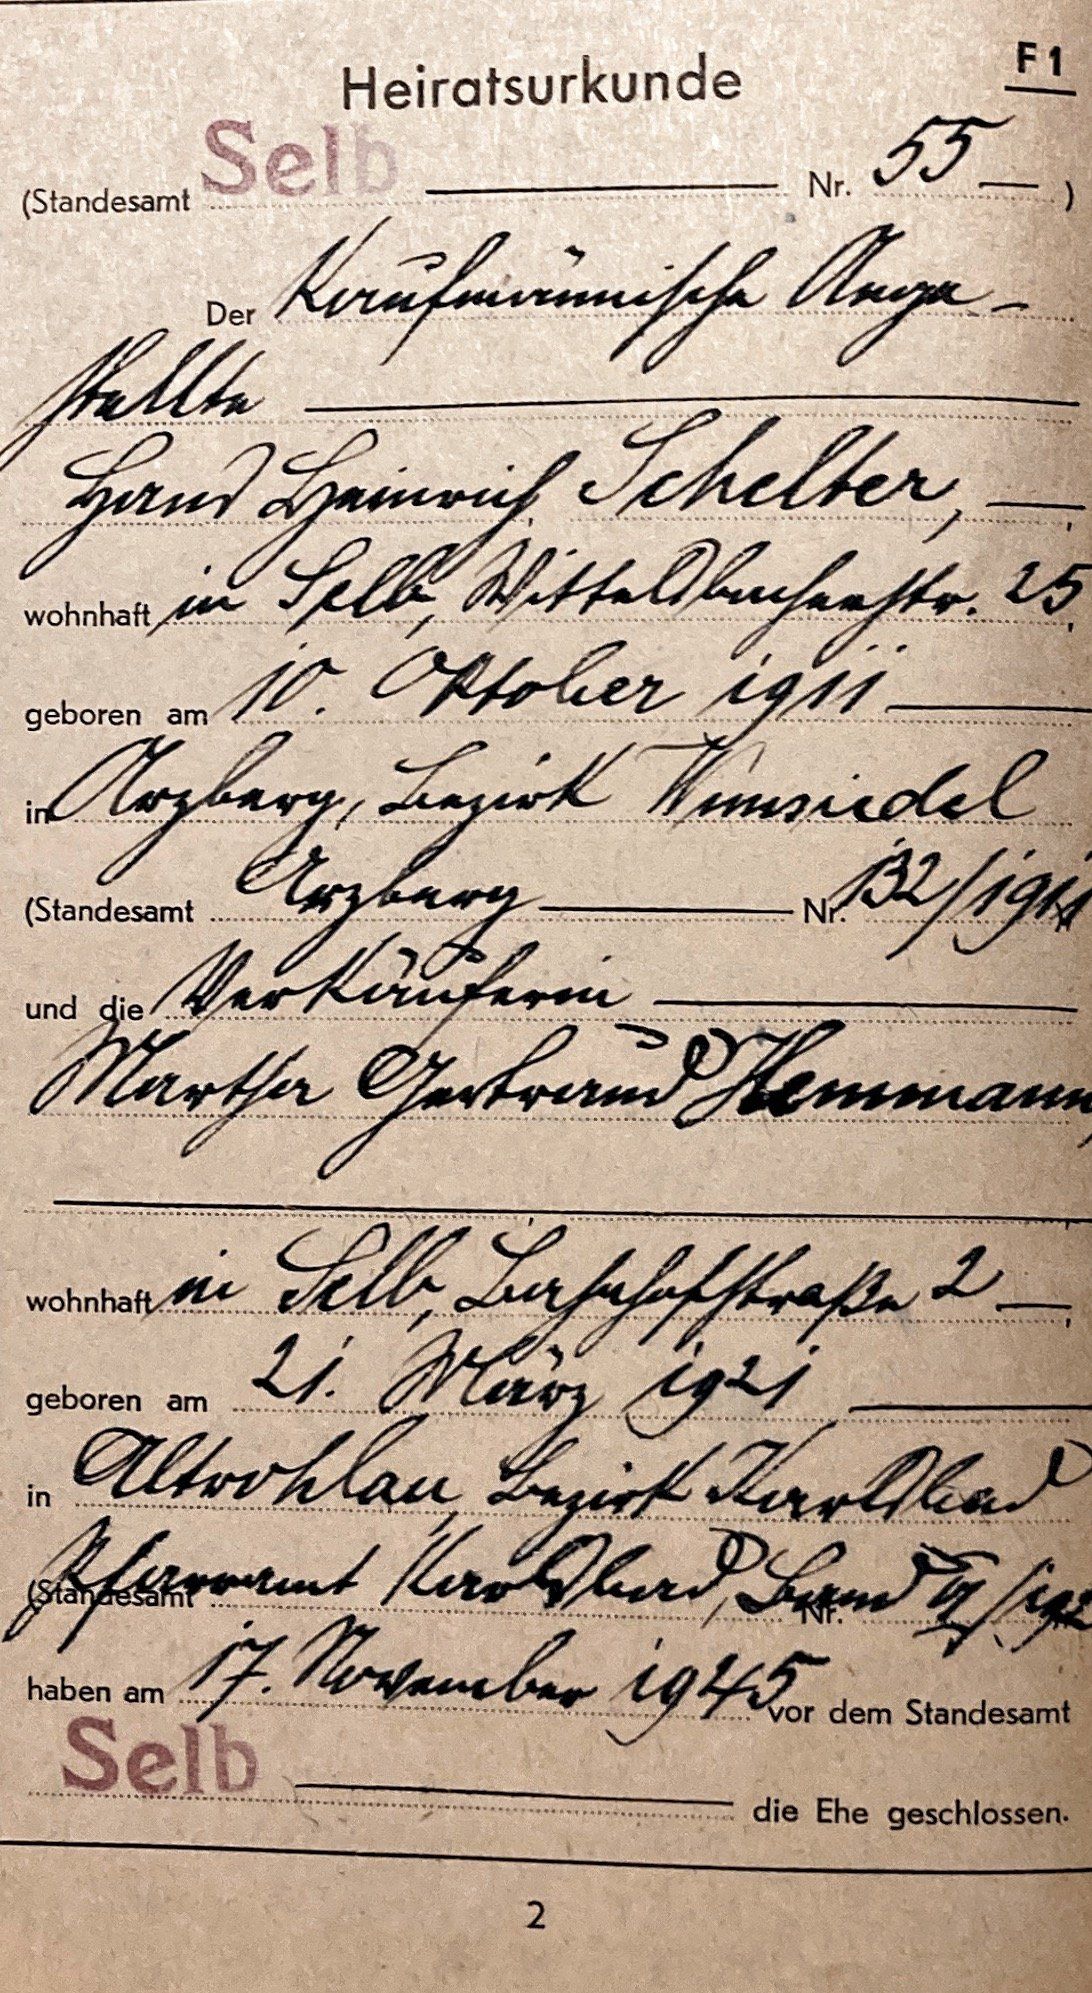 Heiratsurkunde
F 1
(Standesamt Selb Nr. 55 )
Der Kaufmännische Ange-
stellte
Hans Heinrich Schelter,
wohnhaft in Selb, Wittelsbacherstr. 25,
geboren am 10. Oktober 1911
in Arzberg, Bezirk Wunsiedel
(Standesamt Arzberg Nr. 132/1911
und die Verkäuferin
Martha Gertraud Hemmann,
wohnhaft in Selb, Bahnhofstraße 2,
geboren am 21. März 1921
in Altrohlau, Bezirk Karlsbad
(Standesamt Pfarramt Karlsbad, Band Nr.
haben am 17. November 1945 vor dem Standesamt
Selb die Ehe geschlossen.
2